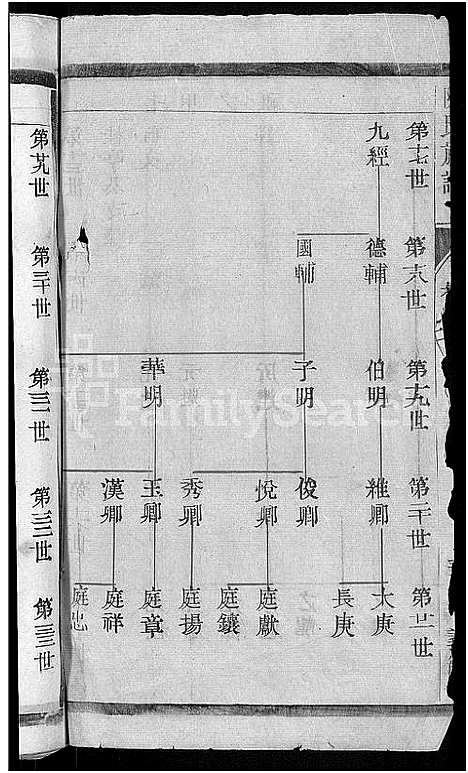 第十七世
九經
第十八世
德輔
國輔
第十九世
伯明
子明
華明
第二十世
維卿
俊卿
悅卿
秀卿
玉卿
漢卿
第廿一世
太庚
長庚
庭獻
庭鑲
庭揚
庭章
庭祥
第廿九世
第三十世
第三一世
第三二世
第三三世
FamilySearch